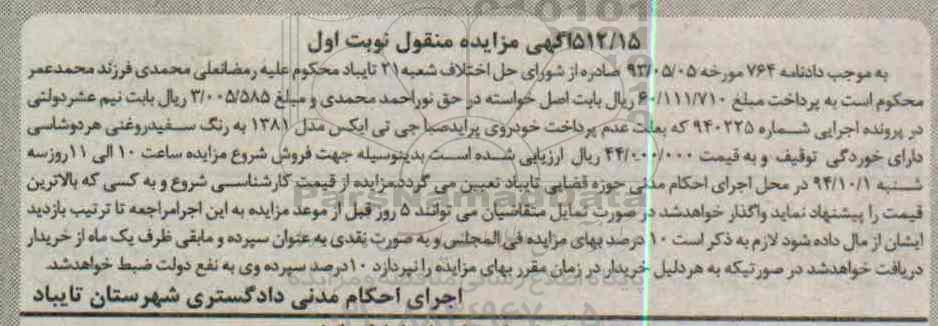 ۵۱۲/۱۵اگهی مزایده منقول نوبت اول
به موجب دادنامه ۷۶۴ مورخه ۹۳/۰۵/۰۵ صادره از شورای حل اختلاف شعبه۲۱ تایباد محکوم علیه رمضانعلی محمدی فرزند محمدعمر
محکوم است به پرداخت مبلغ ۶۰/۱۱۱/۷۱۰ ریال بابت اصل خواسته در حق نوراحمد محمدی و مبلغ ۳/۰۰۵/۵۸۵ ریال بابت نیم عشردولتی
در پرونده اجرایی شماره ۹۴۰۲۲۵ که بعلت عدم پرداخت خودروی پرایدصبا جی تی ایکس مدل ۱۳۸۱ به رنگ سفیدروغنی هردوشاسی
دارای خوردگی توقیف و به قیمت ۴۴/۰۰۰/۰۰۰ ریال ارزیابی شده است بدینوسیله جهت فروش شروع مزایده ساعت ۱۰ الی ۱۱روزسه
شنبه ۹۴/۱۰/۱ در محل اجرای احکام مدنی حوزه قضایی تایباد تعیین می گردد.مزایده از قیمت کارشناسی شروع و به کسی که بالاترین
قیمت را پیشنهاد نماید واگذار خواهدشد در صورت تمایل متقاضیان می توانند ۵ روز قبل از موعد مزایده به این اجرامراجعه تا ترتیب بازدید
ایشان از مال داده شود لازم به ذکر است ۱۰ درصد بهای مزایده فی المجلس و به صورت نقدی به عنوان سپرده و مابقی ظرف یک ماه از خریدار
دریافت خواهدشد در صورتیکه به هردلیل خریدار در زمان مقرر بهای مزایده را نپردازد ۱۰درصد سپرده وی به نفع دولت ضبط خواهدشد.
اجرای احکام مدنی دادگستری شهرستان تایباد
ParsNamadData